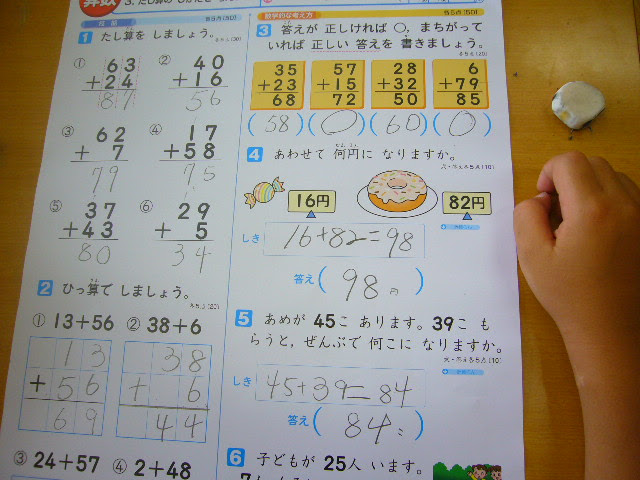 算数
数学的な考え方
1 たし算を しましょう。
① 63
+24
87
② 40
+16
56
③ 62
+ 7
79
④ 17
+58
75
⑤ 37
+43
80
⑥ 29
+ 5
34
2 ひっ算で しましょう。
① 13+56 ② 38+6
13
+56
69
38
+ 6
44
③ 24+57 ④ 2+48
3 答えが 正しければ ○, まちがって
いれば 正しい 答えを 書きましょう。
35
+23
68
(58)
57
+15
72
(○)
28
+32
50
(60)
6
+79
85
(○)
4 あわせて 何円に なりますか。
16円
82円
しき 16+82=98
答え(98円)
5 あめが 45こ あります。39こ も
らうと, ぜんぶで 何こに なりますか。
しき 45+39=84
答え(84こ)
6 子どもが 25人 います。